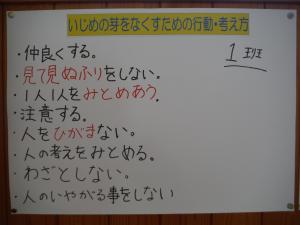 いじめの芽をなくすための行動・考え方
1班
・仲良くする。
・見て見ぬふりをしない。
・1人1人をみとめあう。
・注意する。
・人をひがまない。
・人の考えをみとめる。
・わざとしない。
・人のいやがる事をしない